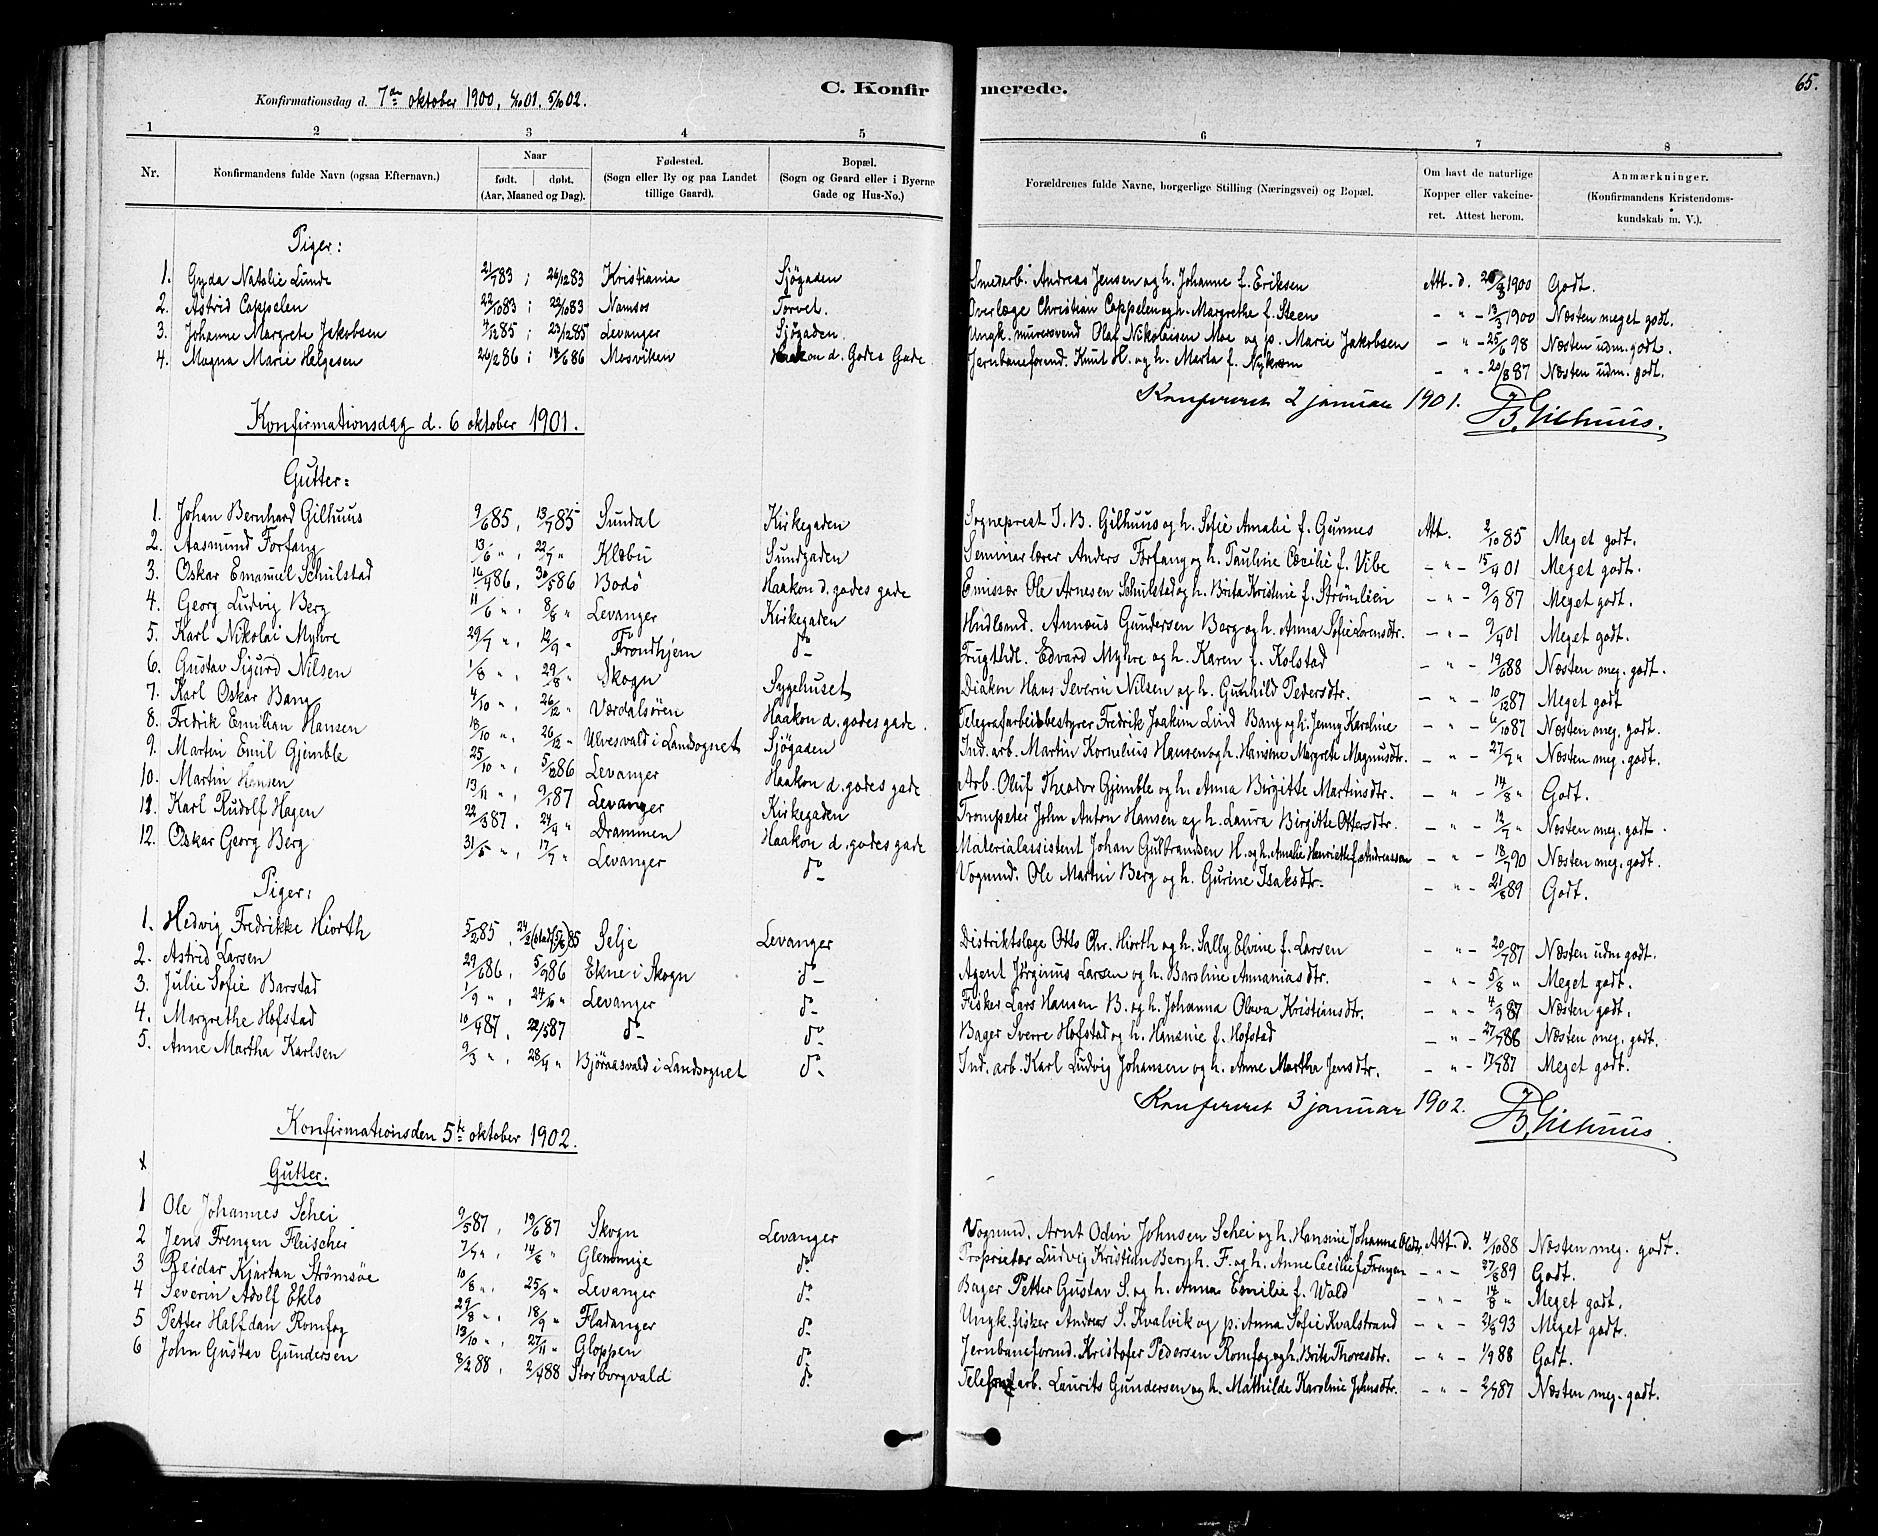 65.
Konfirmationsdag d. 7de oktober 1900, 6/10 01. 5/10 02.
C. Konfirmerede.
1 2 3 4 5 6 7 8
Nr. Konfirmandens fulde Navn (ogsaa Efternavn.) Naar født. døbt. (Aar, Maaned og Dag). Fødested. (Sogn eller By og paa Landet tillige Gaard). Bopæl. (Sogn og Grard eller i Byerne Gade og Hus-No.) Forældrenes fulde Navne, borgerlige Stilling (Næringsvei) og Bopæl. Om havt de naturlige Kopper eller vakcineret. Attest herom. Anmærkninger. (Konfirmandens Kristendomskundskab m. V.).
Piger:
1. Gyda Natalie Lunde 21/7 83 ; 26/12 83 Kristiania Sjøgaden Smedarb. Andreas Jensen og h. Johanne f. Eriksen Att. d. 1900 Godt.
2. Astrid Cappelen 22/10 83 ; 22/10 83 Namsos Torvet. Overlæge Christian Cappelen og h. Margrethe f. Steen - " - 13/3 1900 Næsten meget godt.
3. Johanne Margrete Jakobsen 4/12 85 ; 23/12 85 Levanger Sjøgaden. Ungk. murersvend Olaf Nikolaisen Moe og p. Marie Jakobsen - " - 25/6 98 Næsten udm. godt.
4. Magna Marie Helgesen 26/2 86 ; 14/6 86 Mosviken Haakon d. Godes Gade. Jernbaneformd. Knut H. og h. Marta f. Nykrem - " - 20/8 87 Næsten udm. godt.
Konfereret 2 januar 1901. J B. Gilhuus.
Konfirmationsdag d. 6 oktober 1901.
Gutter:
1. Johan Bernhard Gilhuus 9/6 85, 13/7 85 Sundal Kirkegaden Sogneprest J. B. Gilhuus og h. Sofie Amalie f. Gunnes Att. 2/10 85 Meget godt.
2. Aasmund Forfang 13/6 ", 22/7 " Klæbu Sundgaden Seminarlærer Anders Forfang og h. Pauline Cæcilie f. Vibe - " - 15/9 01 Meget godt.
3. Oskar Emanuel Schulstad 16/4 86, 30/5 86 Bodø Haakon d. godes gade Emissær Ole Arnesen Schulstad og h. Brita Kristine f. Strömlien - " - 9/9 87 Meget godt.
4. Georg Ludvig Berg 11/6 ", 8/8 " Levanger Kirkegaden Hndlsmd. Annæus Gundersen Berg og h. Anna Sofie Lorensdtr. - " - 9/9 01 Meget godt.
5. Karl Nikolai Myhre 29/7 ", 12/9 " Trondhjem do Frugthdl. Edvard Myhre og h. Karen f. Kolstad - " - 88 Næsten meg. godt.
6. Gustav Sigurd Nilsen 1/8 ", 29/8 " Skogn Sygehuset Diakon Hans Severin Nilsen og h. Gunhild Pedersdtr. - " - 10/12 87 Meget godt
7. Karl Oskar Bang 4/10 ", 26/12 " Værdalsören Haakon d. godes gade. Telegrafarbeidsbestyrer Fredrik Joakim Lind Bang og h. Jenny Karoline - " - 6/10 87 Næsten meg. godt.
8. Fredrik Emilian Hansen 18/10 ", 26/12 " Ulvesvald i Landsognet Sjøgaden Ind. arb. Martin Kornelius Hansen og h. Hansine Margrete Magnusdtr. - " - 27/7 " Næsten meg. godt.
9. Martin Emil Gjemble 25/10 ", 5/2 86 Levanger Haakon d. godes gade Arb. Oluf Theodor Gjemble og h. Anna Birgitte Martinsdtr. - " - 14/8 " Godt.
10. Martin Hansen 13/11 ", 9/1 87 Levanger Kirkegaden Trompeter John Anton Hansen og h. Laura Birgitte Ottersdtr. - " - 12/7 " Næsten meg. godt.
11. Karl Rudolf Hagen 22/3 87, 24/4 " Drammen Haakon d. godes gade Materialassistent Johan Gulbrandsen H. og h. Amalie Henriette f. Andreassen - " - 18/7 90 Næsten meg. godt.
12. Oskar Georg Berg 31/5 ", 17/7 " Levanger do - Vognmd. Ole Martin Berg og h. Gurine Isaksdtr. - " - 21/8 89 Godt.
Piger:
1. Hedvig Fredrikke Hiorth 5/2 85, 24/2 85 Selje Levanger Distriktslæge Otto Chr. Hiorth og h. Sally Elvine f. Larsen - " - 20/7 87 Næsten udm godt.
2. Astrid Larsen 29/6 86, 5/9 86 Ekne i Skogn do - Agent Jørginus Larsen og h. Baroline Annaniasdtr. - " - 5/8 " Meget godt.
3. Julie Sofie Barstad 1/9 ", 24/10 " Levanger do - Fisker Lars Hansen B. og h. Johanna Olava Kristiansdtr. - " - 4/9 87 Næsten godt.
4. Margrethe Hofstad 10/4 87, 22/5 87 do - do - Bager Sverre Hofstad og h. Hansine f. Hofstad - " - 27/7 88 Næsten meg. godt.
5. Anne Martha Karlsen 9/3 ", 28/4 " Björaasvald i Landsognet do - Ind. arb. Karl Ludvig Johansen og h. Anne Martha Jensdtr. - " - 87 Meget godt.
Konfereret 3 januar 1902. J B. Gilhuus.
Konfirmationsden 5te oktober 1902.
X
Gutter.
1 Ole Johannes Schei 9/5 87, 19/6 87 Skogn Levanger Vognmd. Arnt Odin Johnsen Schei og h. Hansine Johanna Olsdtr. Att. d. 4/10 88 Næsten meg. godt.
2 Jens Frengen Fleischer 7/7 ", 14/8 " Glemmige do Proprietær Ludvig Kristian Bergh. F. og h. Anne Cecilie f. Frengen - " - 27/8 89 Godt.
3 Reidar Kjartan Strömsöe 10/8 ", 25/9 " Levanger do Bager Petter Gustav S. og h. Anna Emilie f. Wold - " - 14/8 " Meget godt.
4 Severin Adolf Eklo 29/8 ", 18/9 " Fladanger do Ungk. fisker Andreas S. Kvalvik og p. Anna Sofie Kvalstrand - " - 21/8 93 Meget godt.
5 Petter Halfdan Romfog 13/10 ", 27/11 " Gloppen do Jernbaneformd. Kristofer Pedersen Romfog og h. Brite Thoresdtr. - " - 1/9 88 Godt.
6 John Gustav Gundersen 8/2 88, 2/4 88 Storborgvald do Telefonarb. Laurits Gundersen og h. Mathilde Karoline Johnsdtr. - " - 87 Næsten meg. godt.